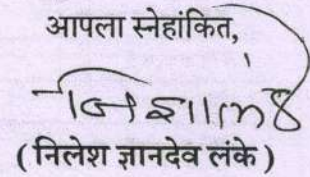 आपला स्नेहांकित,
(निलेश ज्ञानदेव लंके)